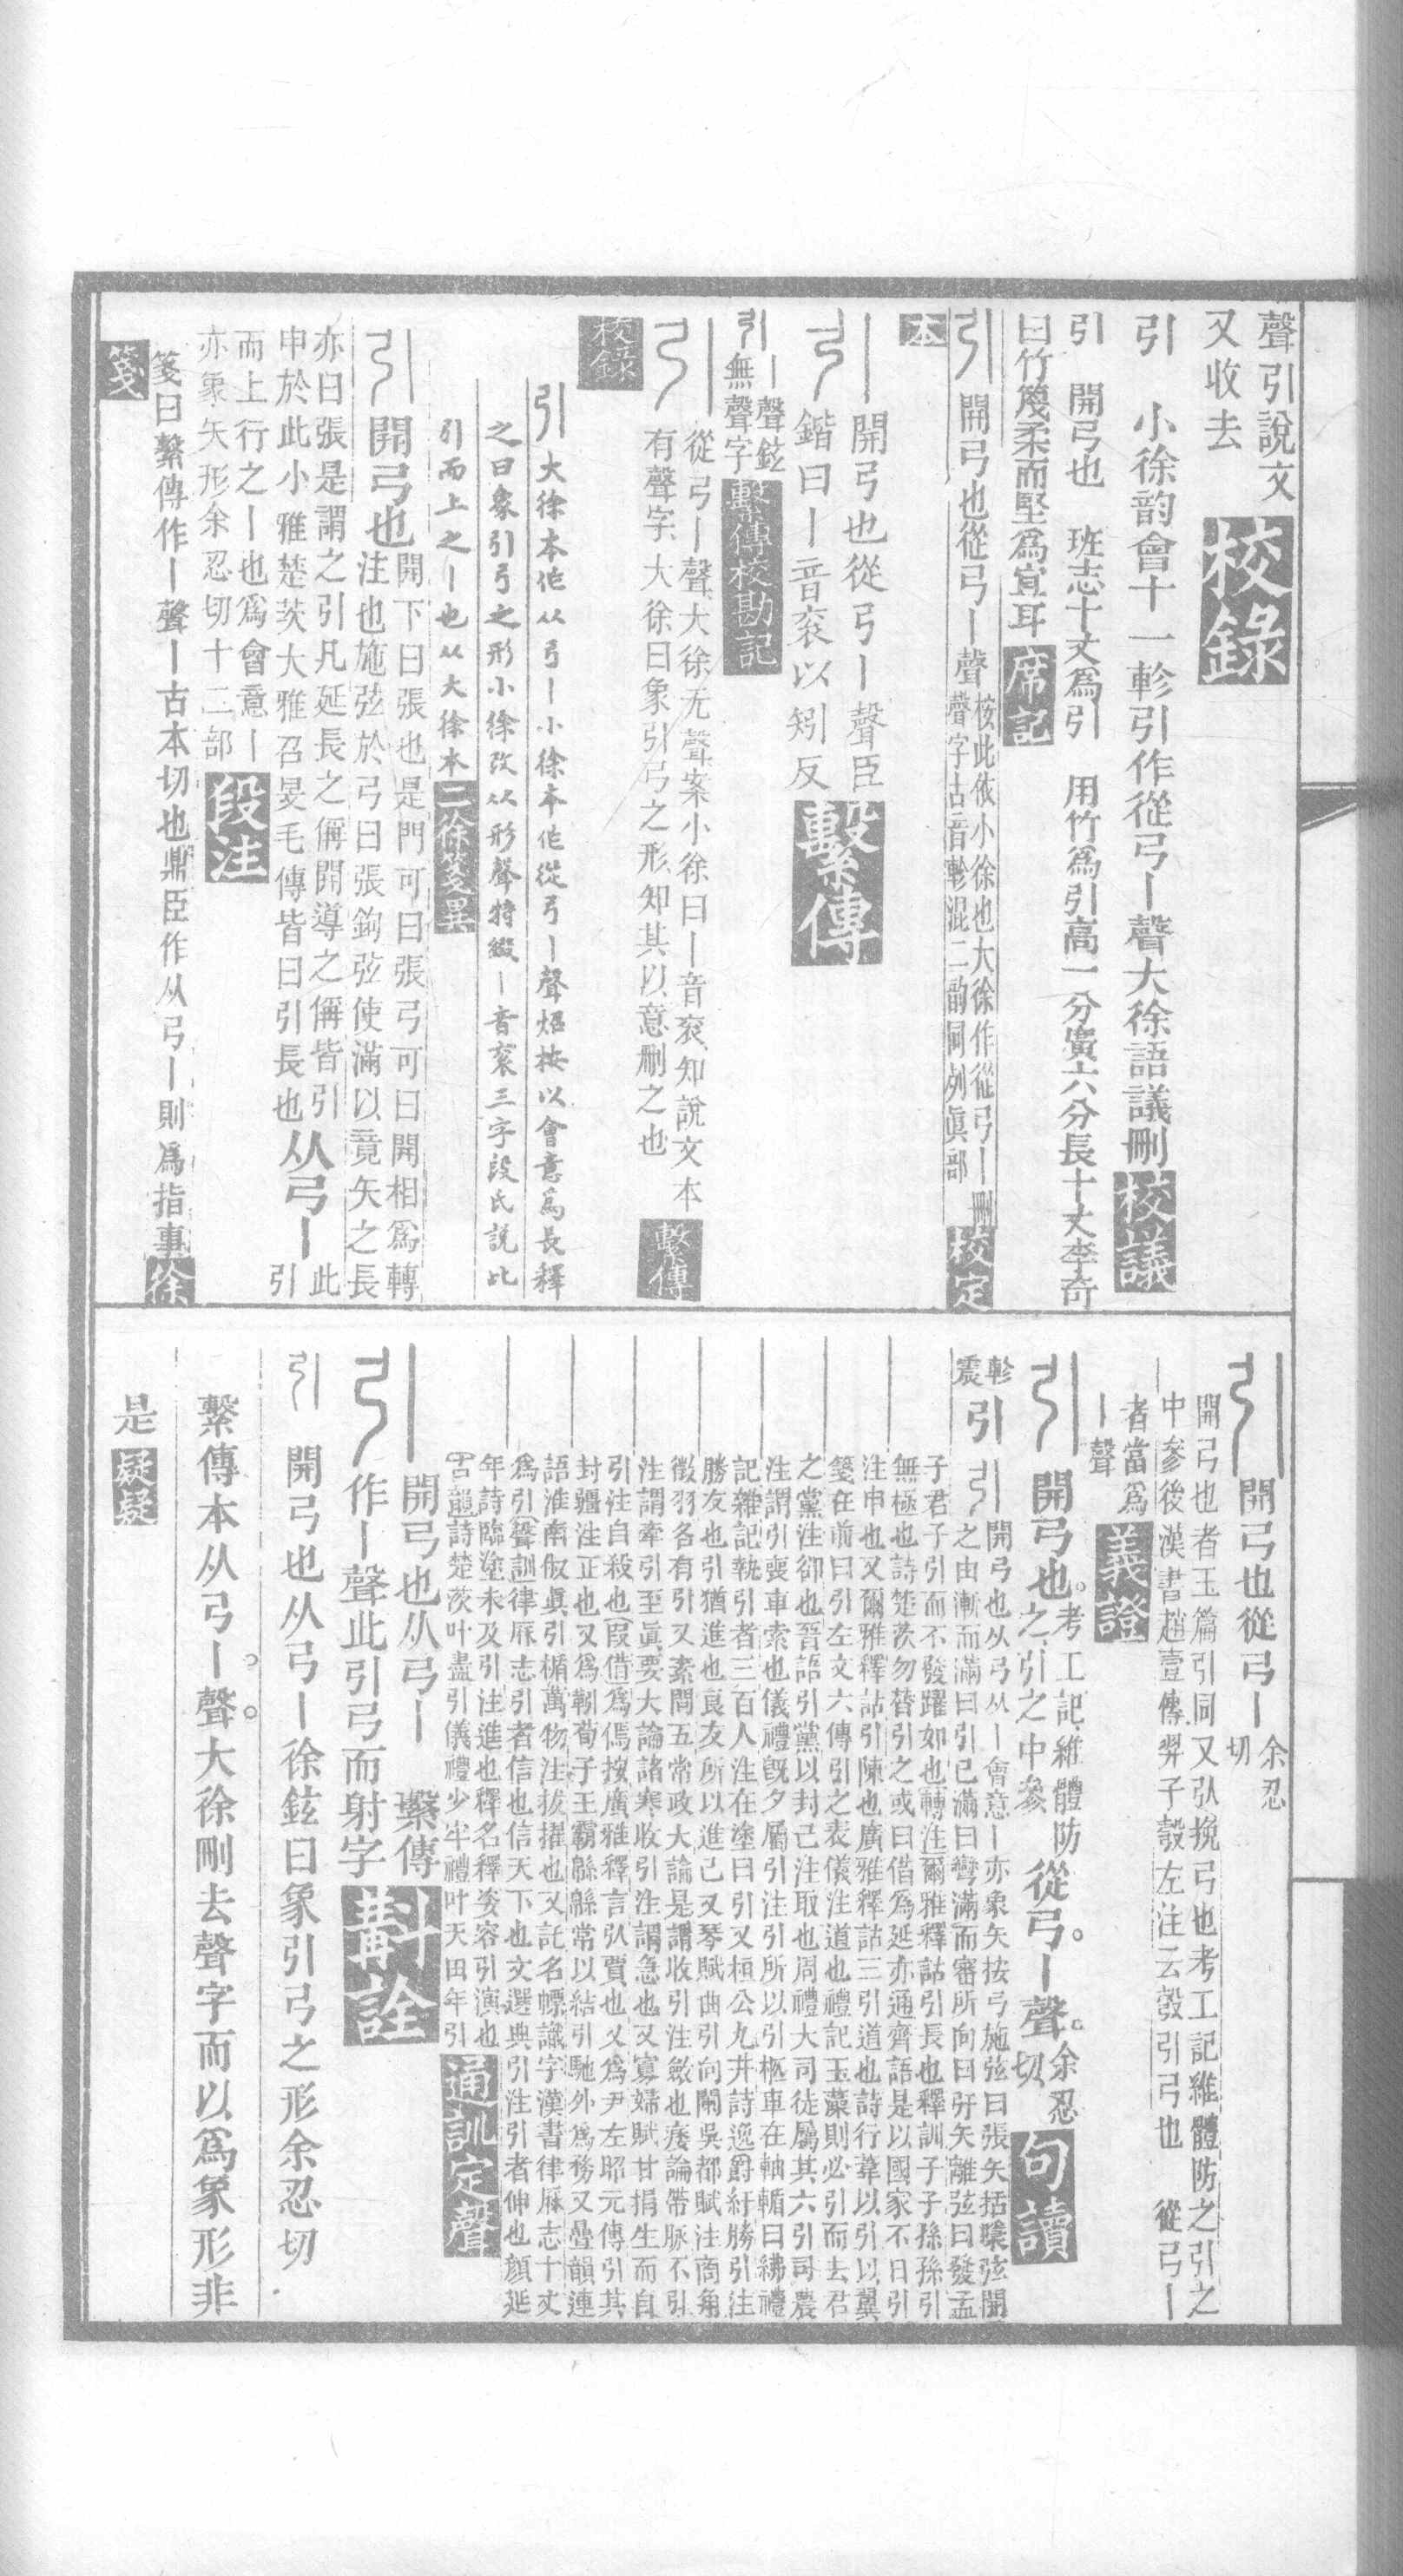 聲引說文
又收去
校錄
引 小徐韵會十一軫引作從弓丨聲大徐語議刪 校議
引 開弓也 班志十丈為引 用竹為引高一分廣六分長十丈李奇
曰竹篾柔而堅為宜耳 席記
引 開弓也從弓丨聲 按此依小徐也大徐作從弓丨刪
聲字古音軫混二韵同列眞部 校定
本
引 開弓也從弓丨聲臣
鍇曰丨音衮以矧反 繫傳
引丨聲鉉
無聲字 繫傳校勘記
引 從弓丨聲大徐无聲案小徐曰丨音衮知說文本
有聲字大徐曰象引弓之形知其以意刪之也 繫傳
校錄
引 大徐本作从弓丨小徐本作從弓丨聲炤按以會意爲長釋
之曰象引弓之形小徐改从形聲特綴丨音衮三字段氏說此
引而上之丨也从大徐本 二徐箋異
引 開弓也 開下曰張也是門可曰張弓可曰開相爲轉
注也施弦於弓曰張鉤弦使滿以竟矢之長
亦曰張是謂之引凡延長之偁開導之偁皆引
申於此小雅楚茨大雅召旻毛傳皆曰引長也 从弓丨 此
引
而上行之丨也爲會意丨
亦象矢形余忍切十二部 段注
箋曰繫傳作丨聲丨古本切也鼎臣作从弓丨則爲指事 徐
箋
引 開弓也從弓丨 余忍
切
開弓也者玉篇引同又弘挽弓也考工記維體防之引之
中參後漢書趙壹傳羿子彀左注云彀引弓也 從弓丨
者當爲
丨聲 義證
引 開弓也。 考工記維體防
之引之中參 從弓。丨聲。 余忍
切 句讀
軫
震 引
引 開弓也从弓从丨會意丨亦象矢按弓施弦曰張矢括檃弦開
之由漸而滿曰引已滿曰彎滿而審所向曰弙矢離弦曰發孟
子君子引而不發躍如也轉注爾雅釋詁引長也釋訓子子孫孫引
無極也詩楚茨勿替引之或曰借爲延亦通齊語是以國家不日引
注申也又爾雅釋詁引陳也廣雅釋詁三引道也詩行葦以引以翼
箋在前曰引左文六傳引之表儀注道也禮記玉藻則必引而去君
之黨注卻也晉語引黨以封己注取也周禮大司徒屬其六引司農
注謂引喪車索也儀禮旣夕屬引注引所以引柩車在軸輴曰紼禮
記雜記執引者三百人注在塗曰引又桓公九井詩逸爵紆勝引注
勝友也引猶進也良友所以進己又琴賦曲引向闌吳都賦注商角
徵羽各有引又素問五常政大論是謂收引注斂也痿論帶脉不引
注謂牽引至眞要大論諸寒收引注謂急也又寡婦賦甘捐生而自
引注自殺也假借爲僞按廣雅釋言弘賈也又爲尹左昭元傳引其
封疆注正也又爲靷荀子王霸緜緜常以結引馳外爲務又疊韻連
語淮南俶眞引楯萬物注拔擢也又託名幖識字漢書律厤志十丈
爲引聲訓律厤志引者信也信天下也文選典引注引者伸也顔延
年詩臨塗未及引注進也釋名釋姿容引演也
古韻詩楚茨叶盡引儀禮少牢禮叶天田年引 通訓定聲
引 開弓也从弓丨 繫傳
作丨聲此引弓而射字 斠詮
引 開弓也从弓丨徐鉉曰象引弓之形余忍切
繫傳本从弓丨。聲。大徐刪去聲字而以爲象形非
是 疑疑